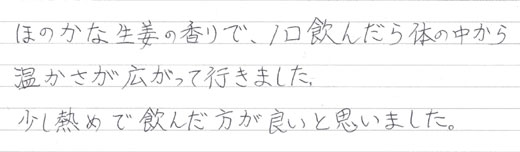 ほのかな生姜の香りで、1口飲んだら体の中から
温かさが広がって行きました、
少し熱めで飲んだ方が良いと思いました。